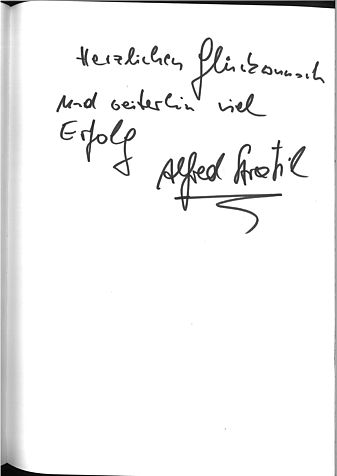 Herzlichen Glückwunsch
und weiterhin viel
Erfolg
Alfred Stratil